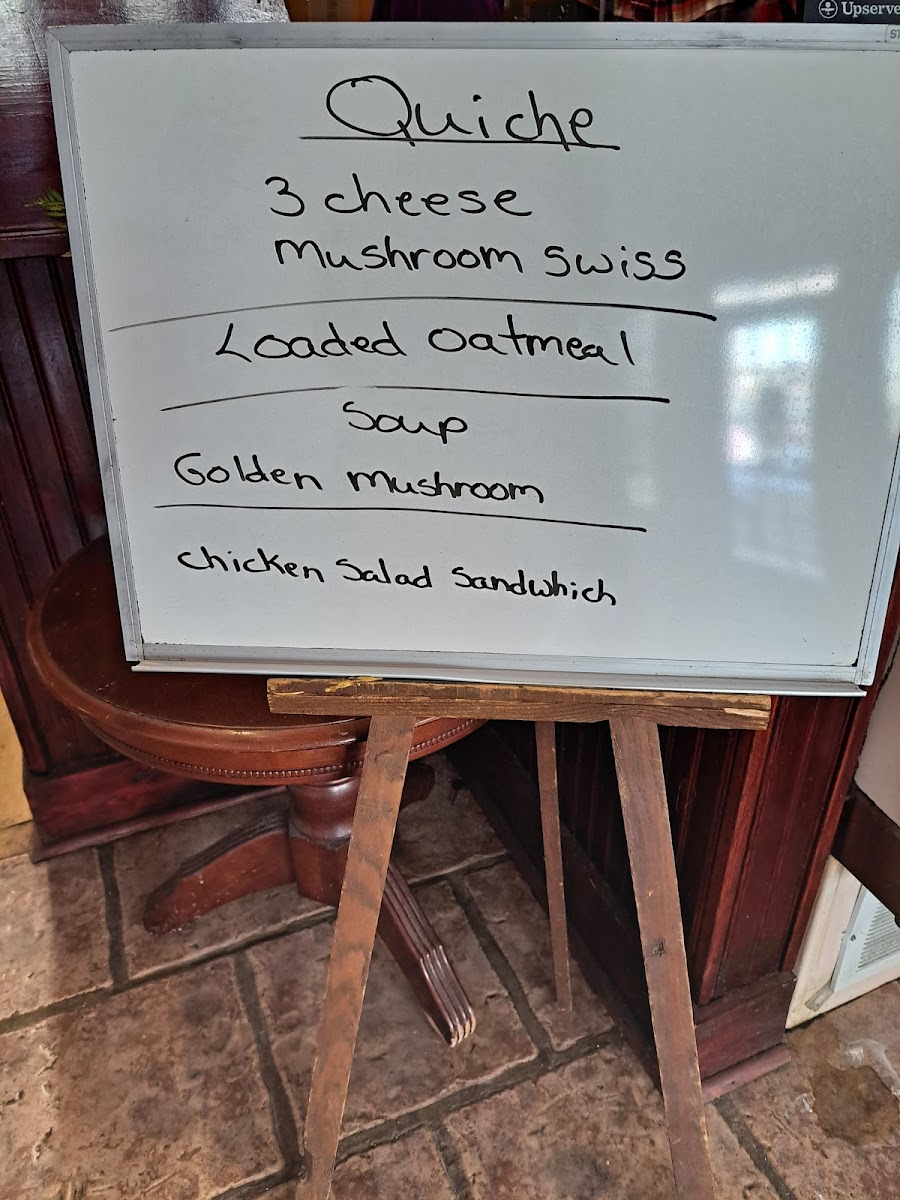 Upserve
ST
Quiche
3 cheese
Mushroom Swiss
Loaded Oatmeal
Soup
Golden Mushroom
Chicken Salad Sandwhich